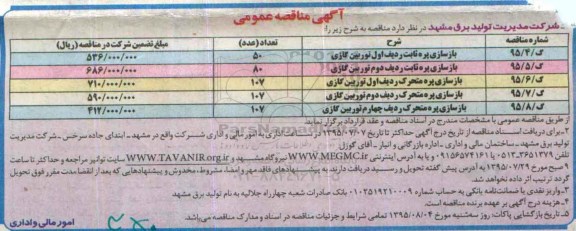 آگهی مناقصه عمومی
شرکت مدیریت تولید برق مشهد در نظر دارد مناقصه به شرح زیر را:
شماره مناقصه شرح تعداد (عدد) مبلغ تضمین شرکت در مناقصه (ریال)
گ/۹۵/۴ بازسازی پره ثابت ردیف اول توربین گازی ۵۰ ۵۳۶/۰۰۰/۰۰۰
گ/۹۵/۵ بازسازی پره ثابت ردیف دوم توربین گازی ۸۰ ۶۸۶/۰۰۰/۰۰۰
گ/۹۵/۶ بازسازی پره متحرک ردیف اول توربین گازی ۱۰۷ ۷۱۰/۰۰۰/۰۰۰
گ/۹۵/۷ بازسازی پره متحرک ردیف دوم توربین گازی ۱۰۷ ۵۹۰/۰۰۰/۰۰۰
گ/۹۵/۸ بازسازی پره متحرک ردیف چهارم توربین گازی ۱۰۷ ۴۱۲/۰۰۰/۰۰۰
از طریق مناقصه عمومی با مشخصات مندرج در اسناد مناقصه و عقد قرارداد برگزار نماید.
۲-برای دریافت اسناد مناقصه از تاریخ درج آگهی حداکثر تا تاریخ ۱۳۹۵/۰۷/۰۷ در ساعات اداری به امور مالی و اداری شرکت واقع در مشهد - ابتدای جاده سرخس - شرکت مدیریت
تولید برق مشهد - ساختمان مالی و اداری - اداره بازرگانی و انبار - آقای گوزل
۰۵۱۳-۳۶۵۱۳۷۹ تلفن ۰۹۱۵۶۵۷۴۱۶۱ و یا به آدرس اینترنتی WWW.MEGMC.ir نیروگاه مشهد و WWW.TAVANIR.org.ir سایت توانیر مراجعه و حداکثر تا ساعت
۹ صبح مورخ ۱۳۹۵/۰۷/۲۹ به آدرس پیش گفته تحویل و رسید دریافت دارند. به پیشنهادهای فاقد مهر و امضاء، مشروط، مخدوش و پیشنهادهایی که بعد از انقضا مدت مقرر فوق تحویل
گردد ترتیب اثر داده نخواهد شد.
۳-واریز نقدی یا ضمانتنامه بانکی به حساب شماره ۰۱۰۲۵۱۹۲۱۰۰۰۹ بانک صادرات شعبه چهارراه جلالیه به نام نیروگاه.
۴-هزینه درج آگهی بر عهده برنده مناقصه است.
۵-تاریخ بازگشایی پاکات: روز سه‌شنبه مورخ ۱۳۹۵/۰۸/۰۴ تمامی شرایط و جزئیات مناقصه در اسناد و مدارک مناقصه می‌باشد.
امور مالی و اداری